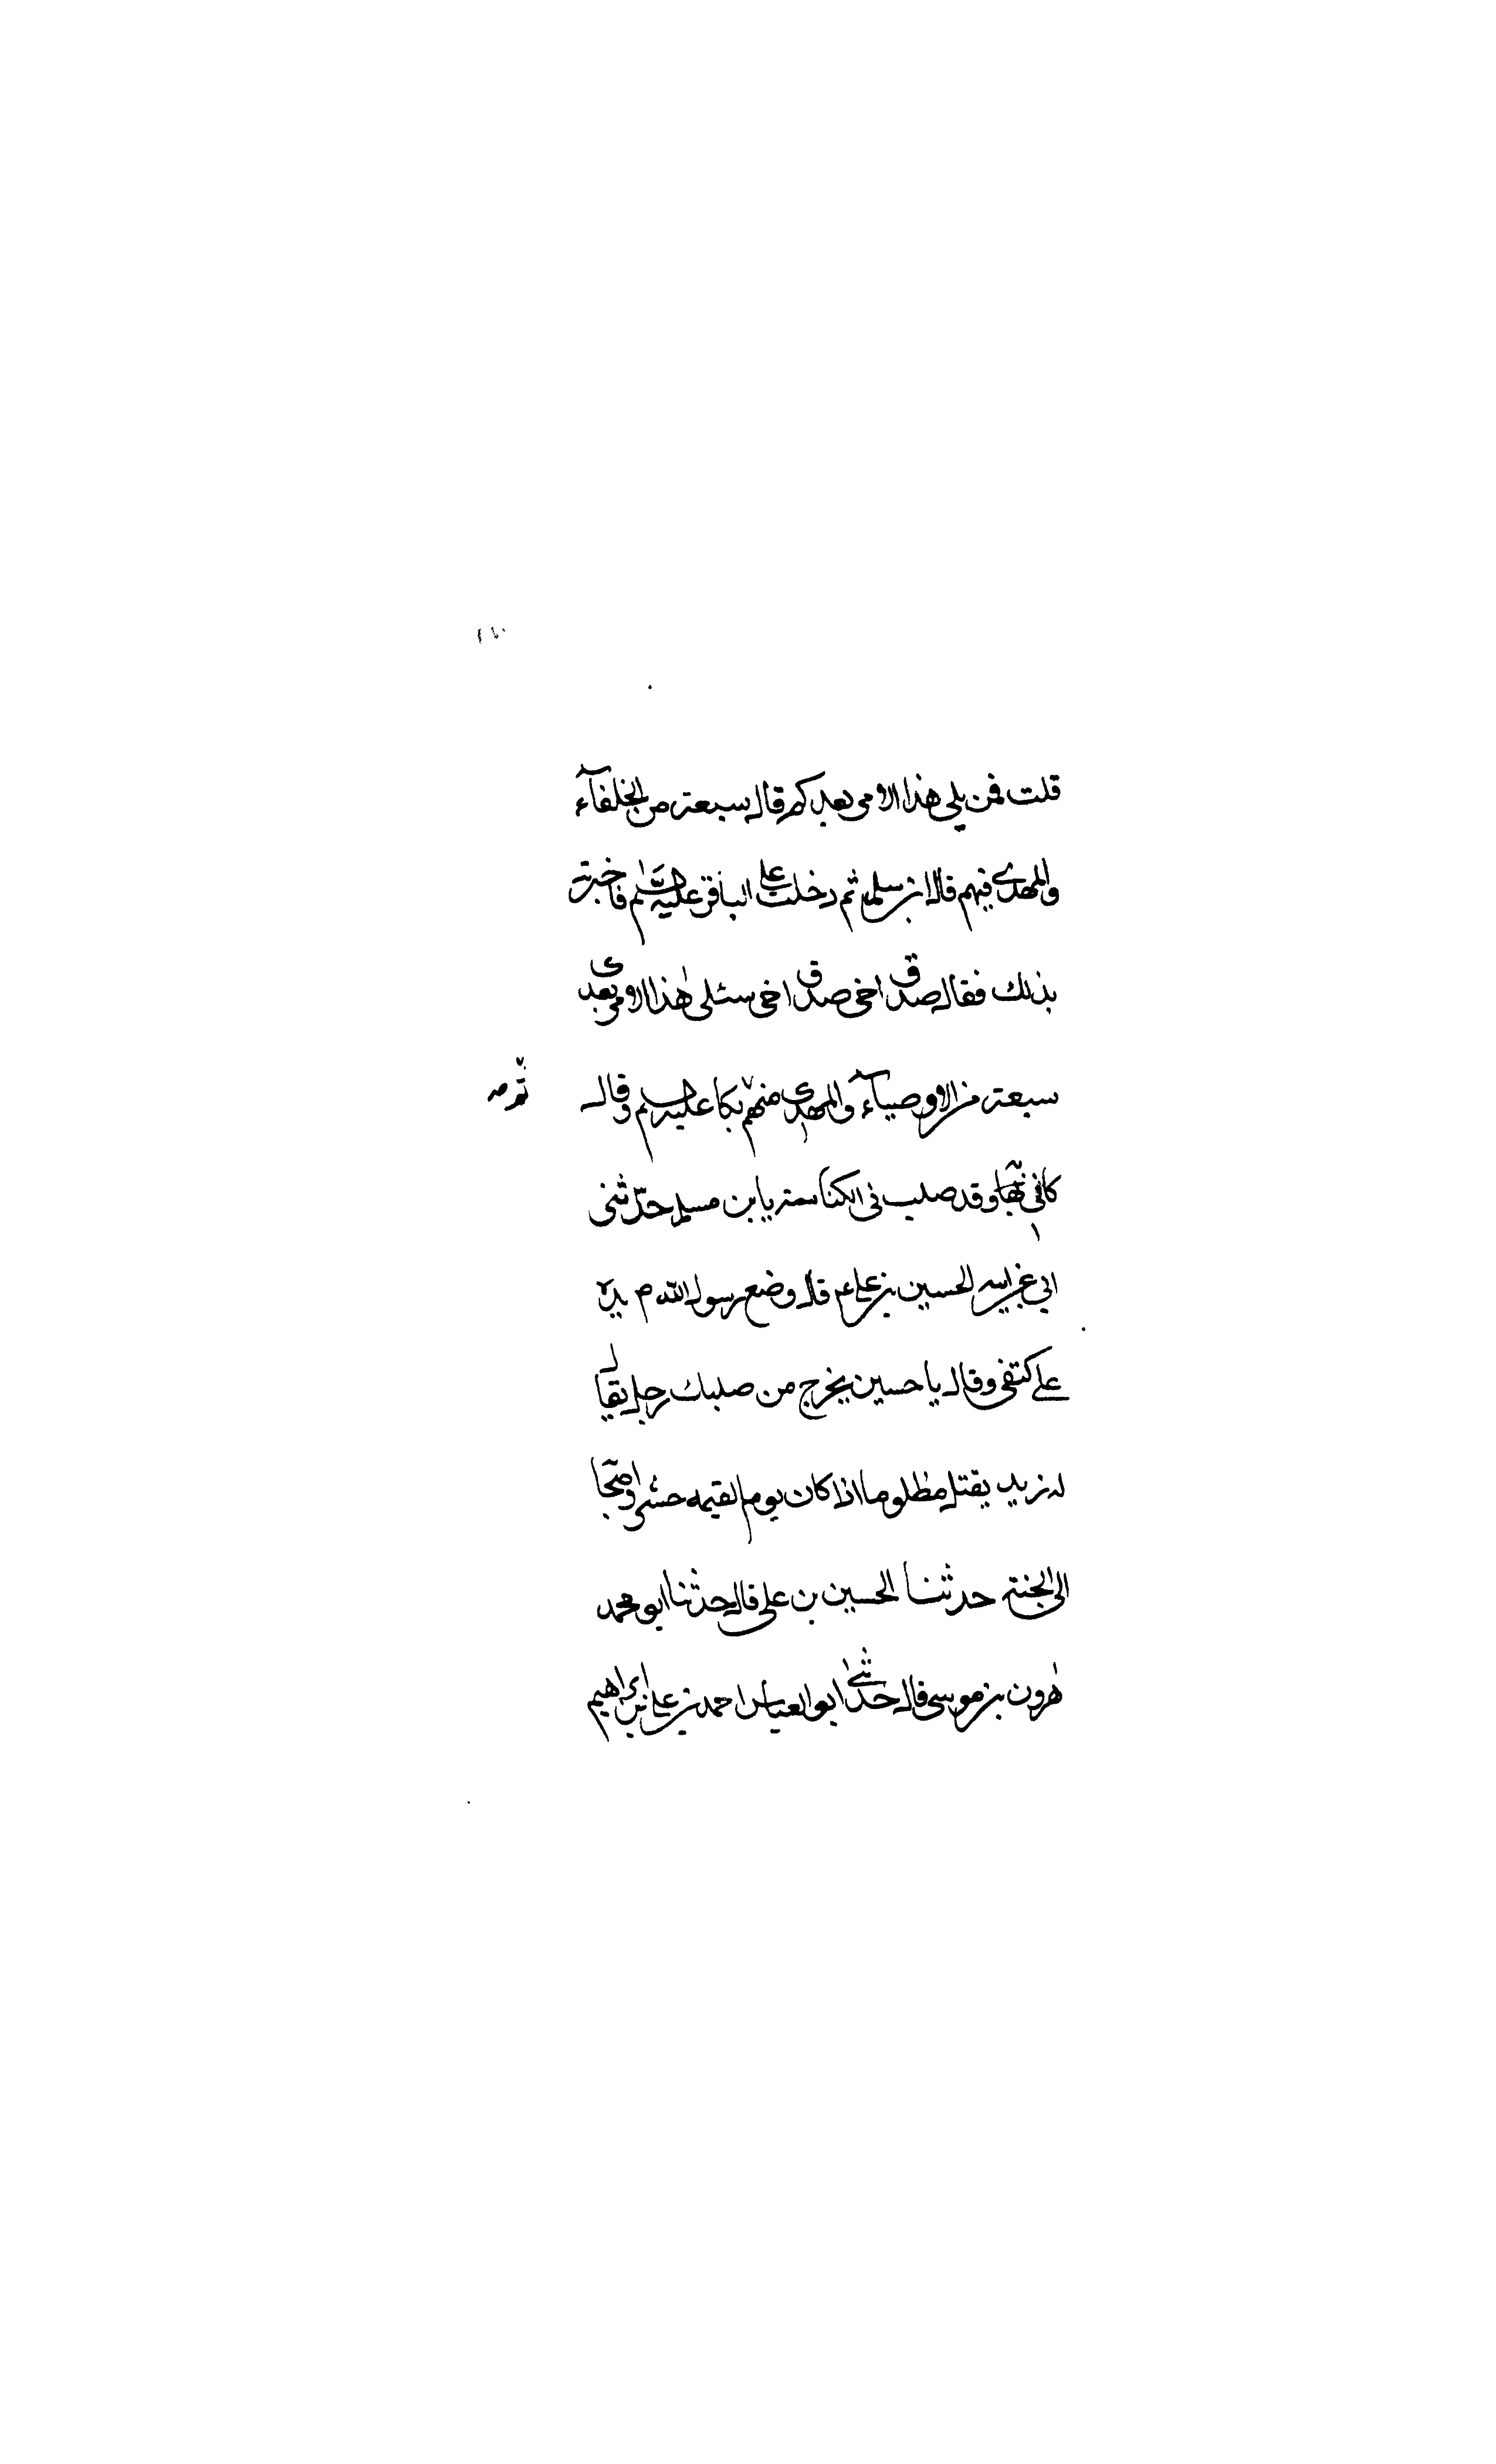 قلت فمن يلي هذا الامر بعدكم قال سبعة من الخلفاء
والمهدي فيهم قال ابن مسلم ثم دخلت على الباقر عليه السلام فاخبرته
بذلك فقال صدق اخي صدق اخي سيلي هذا الامر بعدي
سبعة من الاوصياء والمهدي منهم بكا عليه السلم وقال ثم
كاني بها وقد صلب في الكناسة يابن مسلم حدثني
ابي عن ابيه الحسين بن علي ع قال وضع رسول الله ص يده
على كتفي وقال يا حسين يخرج من صلبك رجل يقال
له زيد يقتل مظلوما اذا كان يوم القيمه حشر واصحا
الى الجنة حدثنا الحسين بن علي قال حدثنا ابو محمد
هرون بن موسى قال حدثني ابو العباس احمد بن علي بن ابراهيم